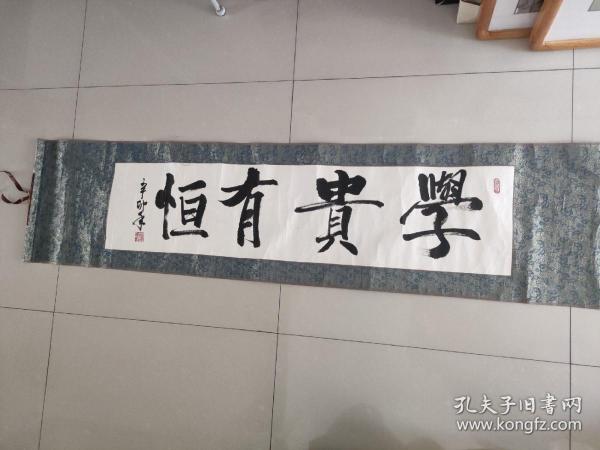 學貴有恒
孔夫子旧书网
www.kongfz.com